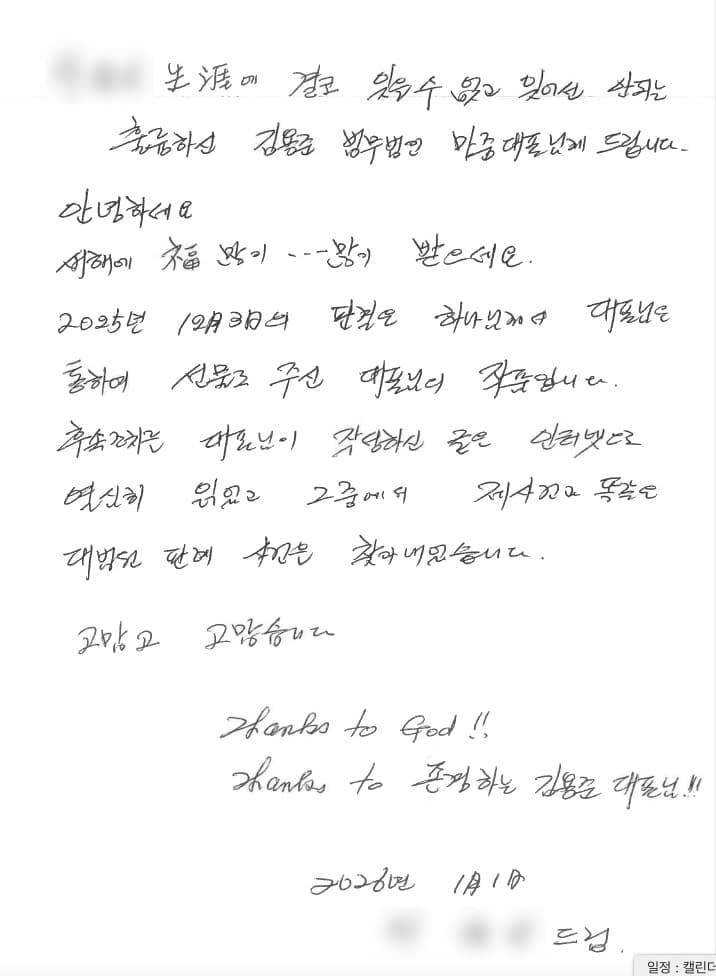 生涯에 결코 잊을수 없고 잊어선 안되는
훌륭하신 김용준 법무법인 마중대표님께 드립니다-
안녕하세요
새해에 福 많이 ---많이 받으세요.
2025년 12月3日의 판결은 하나님께서 대표님을
통하여 선물로 주신 대표님의 작품입니다.
후속조치는 대표님이 작성하신 글은 인터넷으로
열심히 읽었고 그중에서 제사건과 똑같은
대법원 판례 사건을 찾아내었습니다.
고맙고 고맙습니다
Thanks to God!!
Thanks to 존경하는 김용준 대표님!!!
2026년 1月1日
드림.
일정 : 캘린더